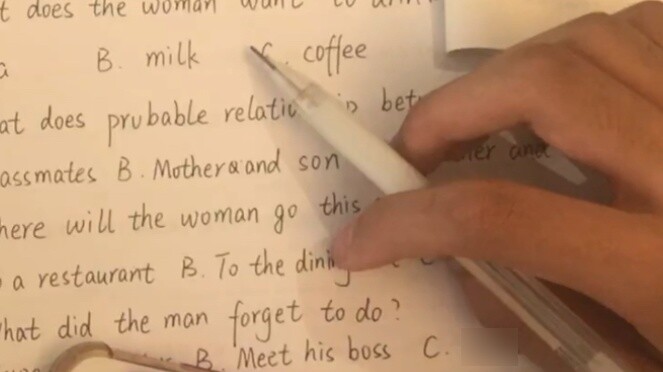 t does the woman want to
a B. milk C. coffee
at does prubable
assmates B. Mother and son and
here will the woman go this
a restaurant B. To the
hat did the man forget to do?
B. Meet his boss C.